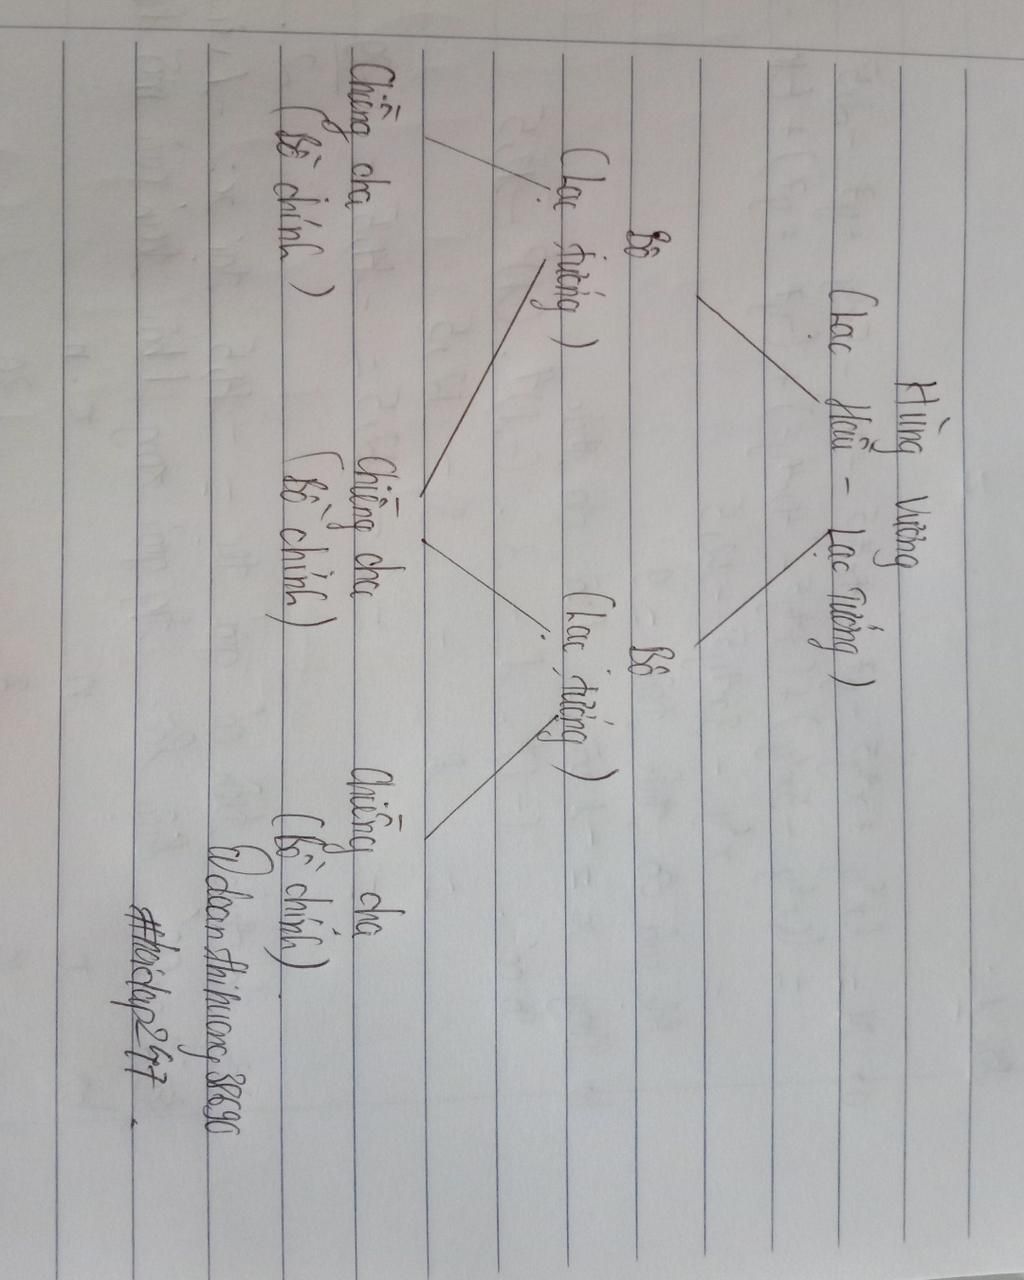 Hùng Vương
(Lạc Hầu - Lạc Tướng)
Bộ Bộ
(Lạc tướng) (Lạc tướng)
Chiềng chạ Chiềng chạ Chiềng chạ
(Bồ chính) (Bồ chính) (Bồ chính)
@doanthihuong38690
#hoidap247.